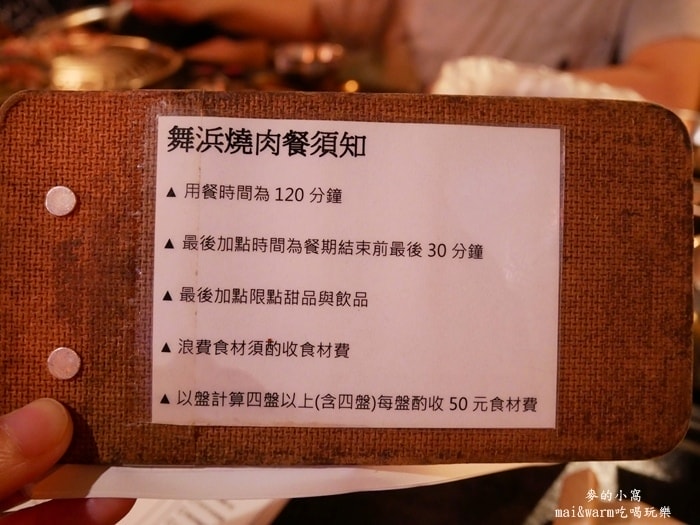 舞浜燒肉餐須知
▲ 用餐時間為 120 分鐘
▲ 最後加點時間為餐期結束前最後 30 分鐘
▲ 最後加點限點甜品與飲品
▲ 浪費食材須酌收食材費
▲ 以盤計算四盤以上(含四盤)每盤酌收 50 元食材費
麥的小窩
mai&warm吃喝玩樂